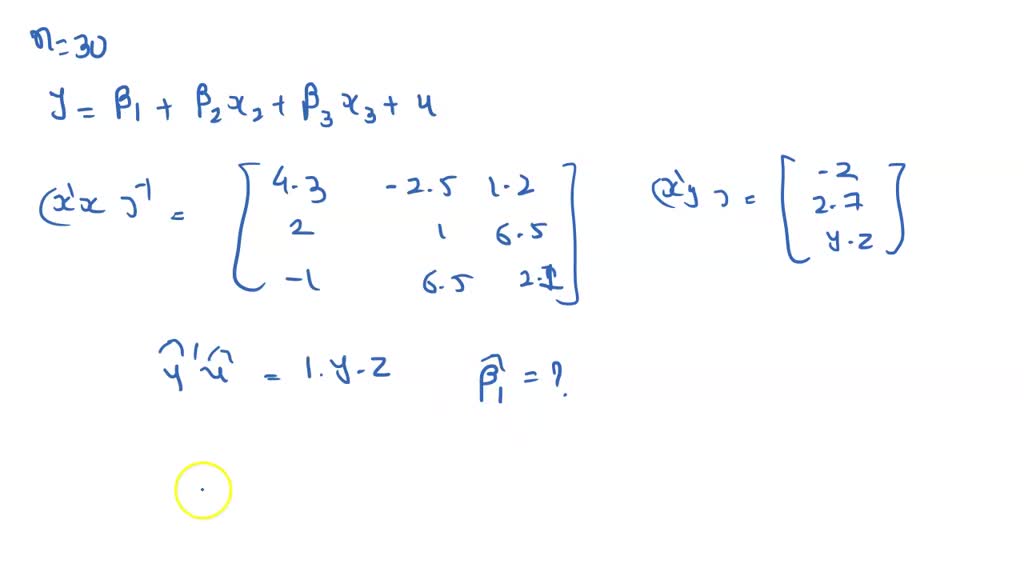 n=30
y = β₁ + β₂x₂ + β₃x₃ + u
(x'x)⁻¹ = [ 4.3 -2.5 1.2
2 1 6.5
-1 6.5 ]
(x'y) = [ -2
2.7
y.z ]
û'û = 1.y.z
β̂₁ = ?